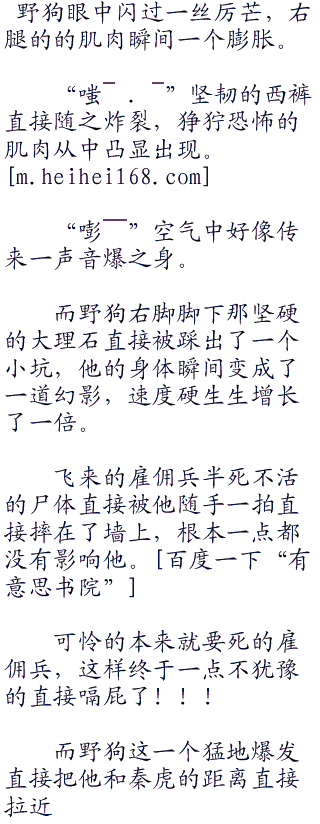 野狗眼中闪过一丝厉芒，右
腿的的肌肉瞬间一个膨胀。
“嗤¯．¯”坚韧的西裤
直接随之炸裂，狰狞恐怖的
肌肉从中凸显出现。
[m.heihei168.com]
“嘭¯¯”空气中好像传
来一声音爆之身。
而野狗右脚脚下那坚硬
的大理石直接被踩出了一个
小坑，他的身体瞬间变成了
一道幻影，速度硬生生增长
了一倍。
飞来的雇佣兵半死不活
的尸体直接被他随手一拍直
接摔在了墙上，根本一点都
没有影响他。[百度一下“有
意思书院”]
可怜的本来就要死的雇
佣兵，这样终于一点不犹豫
的直接嗝屁了！！！
而野狗这一个猛地爆发
直接把他和秦虎的距离直接
拉近